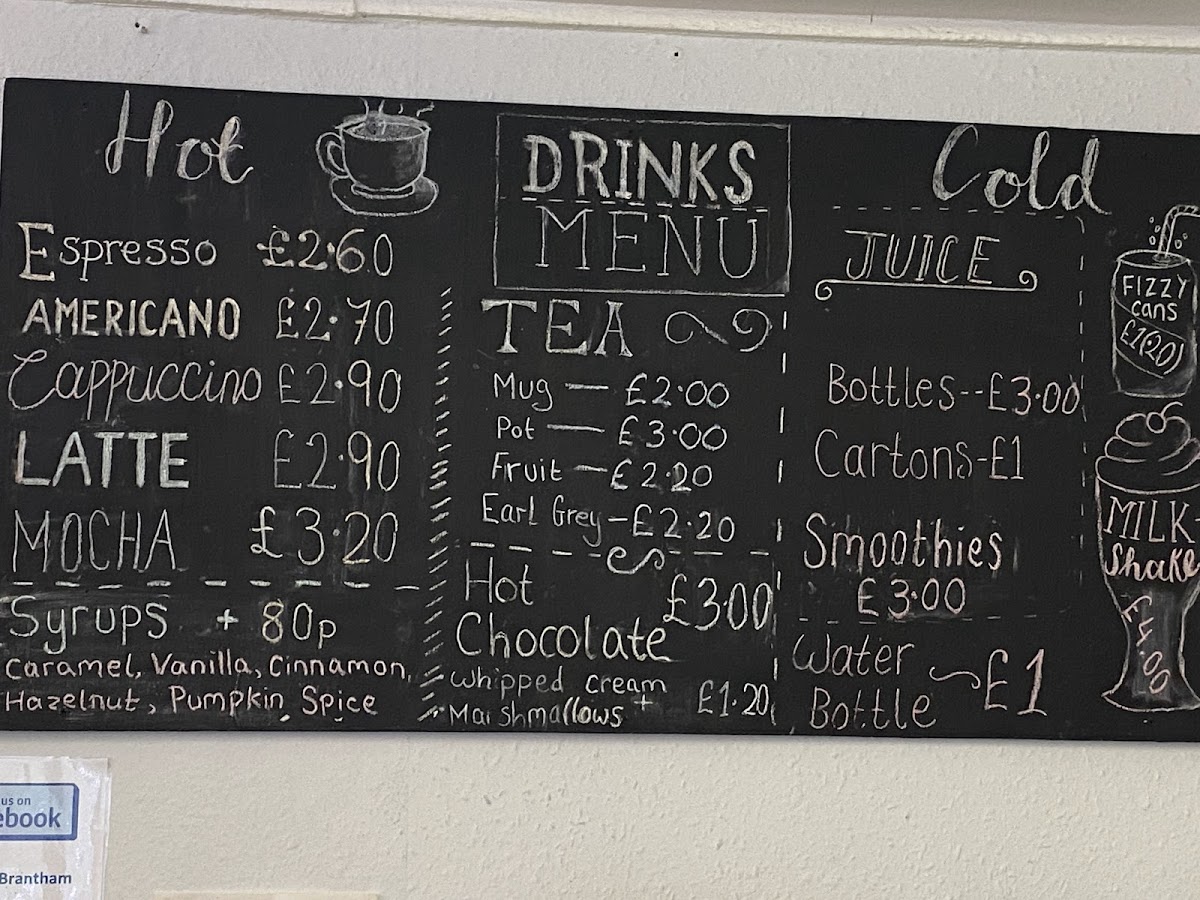 Hot
Espresso £2.60
AMERICANO £2.70
Cappuccino £2.90
LATTE £2.90
MOCHA £3.20
Syrups + 80p
Caramel, Vanilla, Cinnamon,
Hazelnut, Pumpkin Spice
DRINKS
MENU
TEA
Mug — £2.00
Pot — £3.00
Fruit — £2.20
Earl Grey — £2.20
Hot
Chocolate £3.00
Whipped cream
+ Marshmallows £1.20
Cold
JUICE
Bottles--£3.00
Cartons-£1
Smoothies
£3.00
Water
Bottle £1
FIZZY
cans
£1(20)
MILK
Shake
£4.00
us on
ebook
Brantham